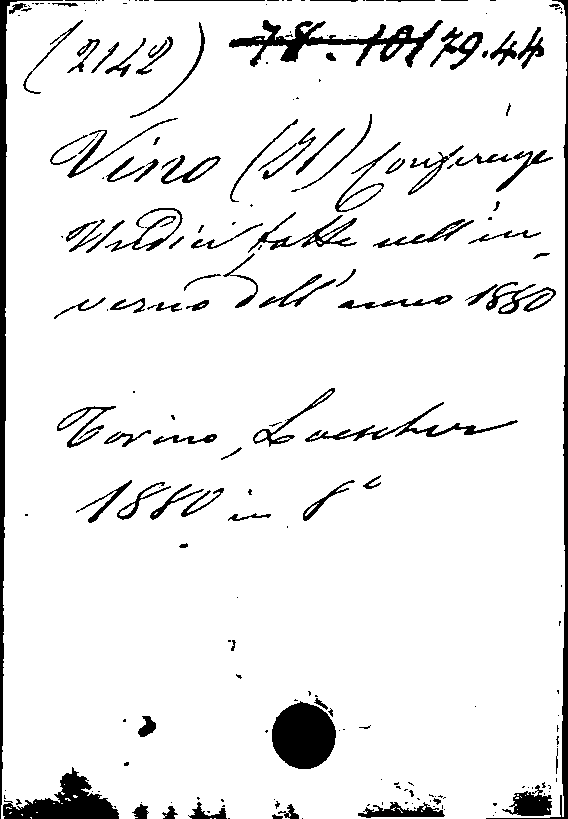 (2142) 78.10179.44
Vino (Il) Conferenze
Undici fatte nell'in-
verno dell'anno 1880
Torino, Loescher
1880 in 8°